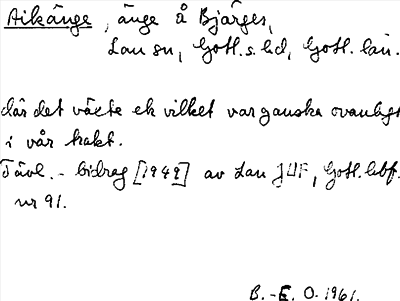 Aikänge, änge å Bjärges,
Lau sn, Gotl. s. hd, Gotl. län.
där det växte ek vilket var ganska ovanligt
i vår trakt.
Tävl. - bidrag [1949] av Lau JUF, Gotl. hbf.
nr 91.
B.-E. O. 1961.